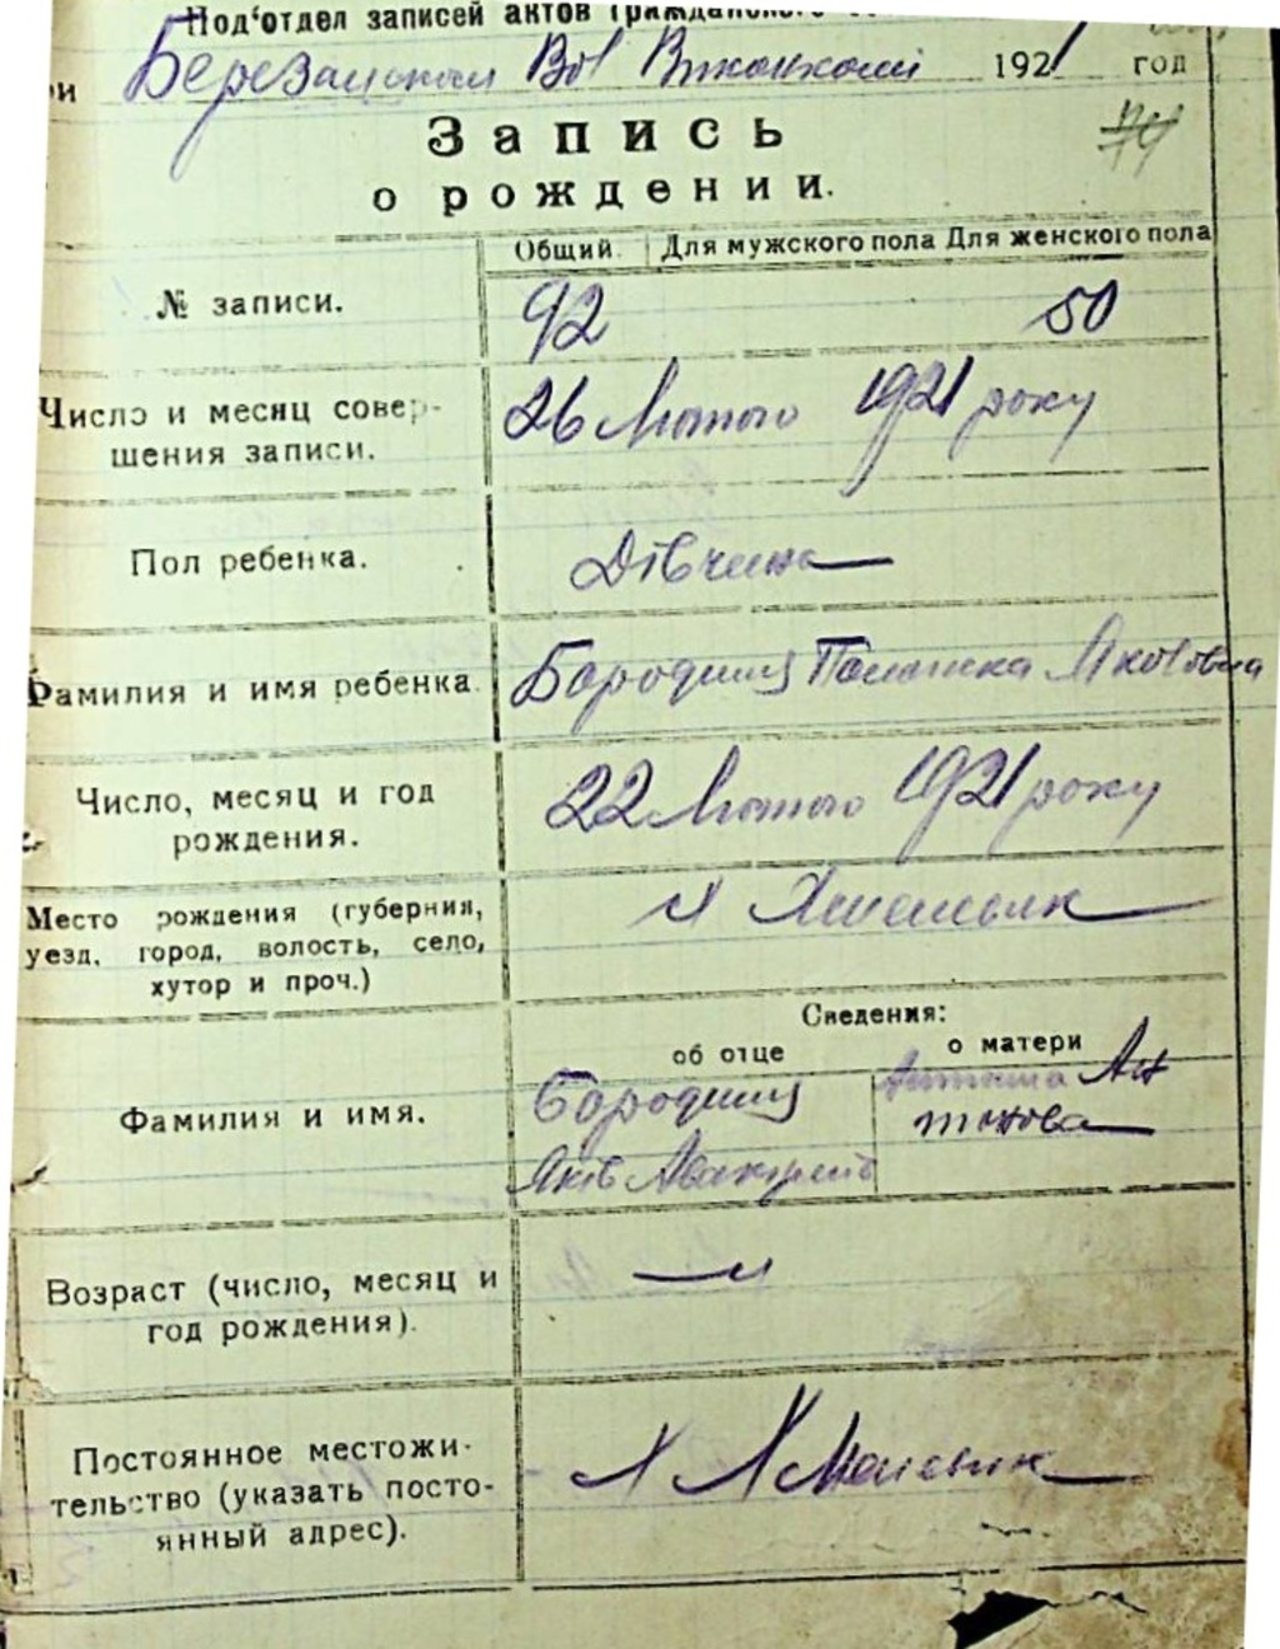 Под'отдел записей актов Гражданского
Вол Виконкомі 1921 год
74
Запись
о рождении.
Общий. Для мужского пола Для женского пола
№ записи. 92 50
Число и месяц совер-
шения записи. 26 Лютого 1921 року
Пол ребенка. Дівчина
Фамилия и имя ребенка. Бородиця Палажка Яковівна
Число, месяц и год
рождения. 22 Лютого 1921 року
Место рождения (губерния,
уезд, город, волость, село,
хутор и проч.) х Хмельник
Сведения:
об отце о матери
Фамилия и имя. Бородиця Ан
тонова
Яків
Возраст (число, месяц и
год рождения).
Постоянное местожи-
тельство (указать посто-
янный адрес). х Хмельник